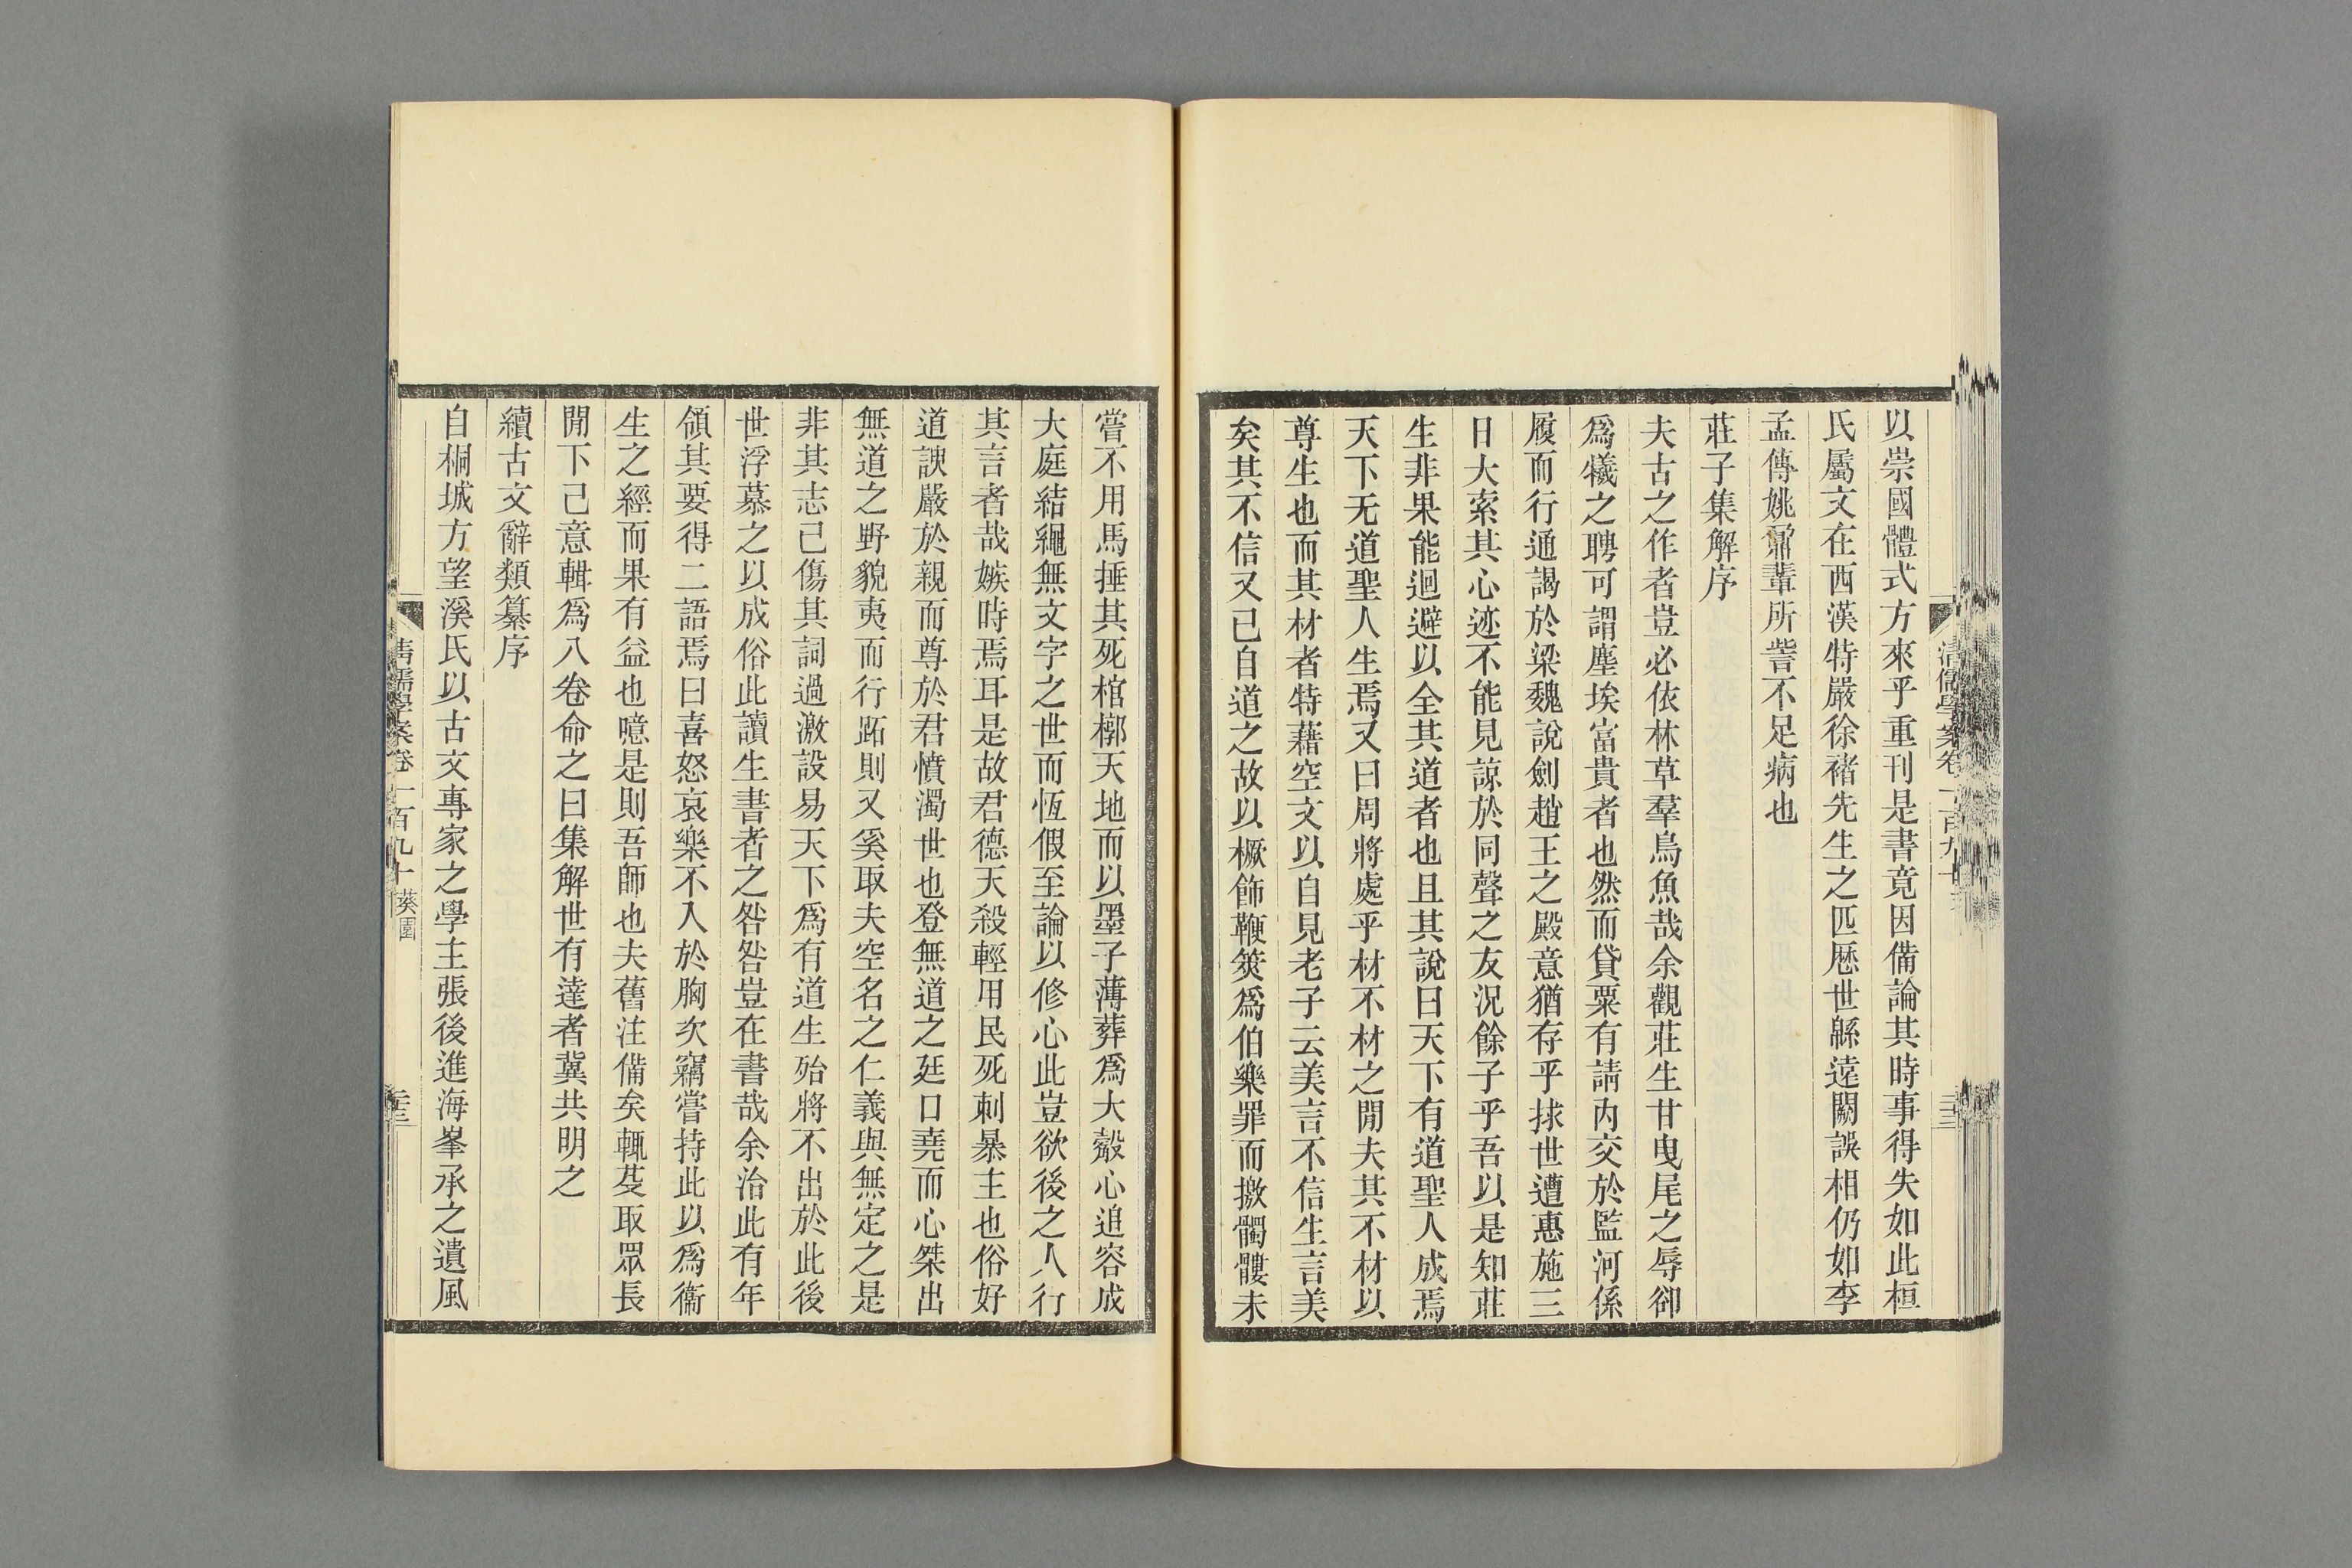 以崇國體式方來乎重刊是書竟因備論其時事得失如此桓
氏屬文在西漢特嚴徐褚先生之匹厯世緜遠闕誤相仍如李
孟傳姚鼐輩所訾不足病也
莊子集解序
夫古之作者豈必依林草羣鳥魚哉余觀莊生甘曳尾之辱卻
爲犧之聘可謂塵埃富貴者也然而貸粟有請內交於監河係
履而行通謁於梁魏說劍趙王之殿意猶存乎捄世遭惠施三
日大索其心迹不能見諒於同聲之友況餘子乎吾以是知莊
生非果能迴避以全其道者也且其說曰天下有道聖人成焉
天下无道聖人生焉又曰周將處乎材不材之閒夫其不材以
尊生也而其材者特藉空文以自見老子云美言不信生言美
矣其不信又已自道之故以橛飾鞭筴爲伯樂罪而撽髑髏未
嘗不用馬捶其死棺槨天地而以墨子薄葬爲大觳心追容成
大庭結繩無文字之世而恆假至論以修心此豈欲後之人行
其言者哉嫉時焉耳是故君德天殺輕用民死刺暴主也俗好
道諛嚴於親而尊於君憤濁世也登無道之廷口堯而心桀出
無道之野貌夷而行跖則又奚取夫空名之仁義與無定之是
非其志已傷其詞過激設易天下爲有道生殆將不出於此後
世浮慕之以成俗此讀生書者之咎咎豈在書哉余治此有年
領其要得二語焉曰喜怒哀樂不入於胸次竊嘗持此以爲衞
生之經而果有益也噫是則吾師也夫舊注備矣輒芟取眾長
閒下己意輯爲八卷命之曰集解世有達者冀共明之
續古文辭類纂序
自桐城方望溪氏以古文專家之學主張後進海峯承之遺風
清儒學案卷一百九十 葵園